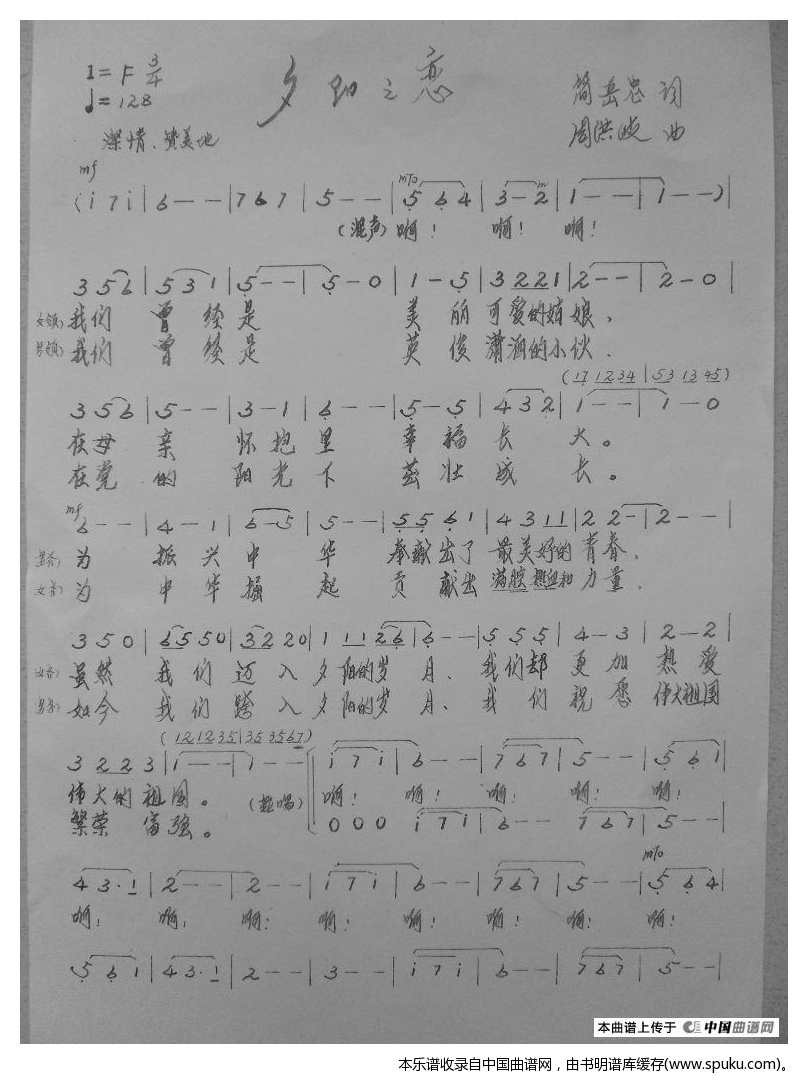 1=F 3/4
♩=128
夕阳之恋
简岳忠 词
周洪波 曲
深情、赞美地
mf
mp
(i 7 i | 6 - - | 7 6 7 | 5 - - | 5 6 4 | 3 - 2 | 1 - - | 1 - -) |
(混声) 啊! 啊! 啊!
3 5 6 | 5 3 1 | 5 - - | 5 - 0 | 1 - 5 | 3 2 2 1 | 2 - - | 2 - 0 |
女领) 我们 曾经是 美丽可爱的姑娘、
男领) 我们 曾经是 英俊潇洒的小伙.
(17 1234 | 53 13 45)
3 5 6 | 5 - - | 3 - 1 | 6 - - | 5 - 5 | 4 3 2 | 1 - - | 1 - 0
在母亲 怀抱里 幸福长大。
在党的 阳光下 茁壮成长。
mf
6 - - | 4 - 1 | 6 - 5 | 5 - - | 5 5 6 1 | 4 3 1 1 | 2 2 - | 2 - - |
为 振兴中华 奉献出了最美好的青春、
女齐) 为 中华掘起 贡献出满腔热血和力量.
3 5 0 | 6 5 5 0 | 3 2 2 0 | 1 1 1 2 6 | 6 - - | 5 5 5 | 4 - 3 | 2 - 2 |
女齐) 虽然 我们迈入夕阳的岁月、我们却更加热爱
男齐) 如今 我们跨入夕阳的岁月、我们祝愿伟大祖国
(12 12 35 | 35 35 67)
3 2 2 3 | i - - | i - - | i 7 i | 6 - - | 7 6 7 | 5 - - | 5 6 1 |
伟大的祖国。 (轮唱) 啊! 啊! 啊! 啊! 啊!
繁荣富强。
0 0 0 | i 7 i | 6 - - | 7 6 7 | 5 - - |
mp
4 3· 1 | 2 - - | 2 - - | i 7 i | 6 - - | 7 6 7 | 5 - - | 5 6 4 |
啊! 啊! 啊! 啊! 啊! 啊! 啊! 啊!
5 6 1 | 4 3· 1 | 2 - - | 3 - - | i 7 i | 6 - - | 7 6 7 | 5 - - |
本曲谱上传于 中国曲谱网
本乐谱收录自中国曲谱网，由书明谱库缓存(www.spuku.com)。